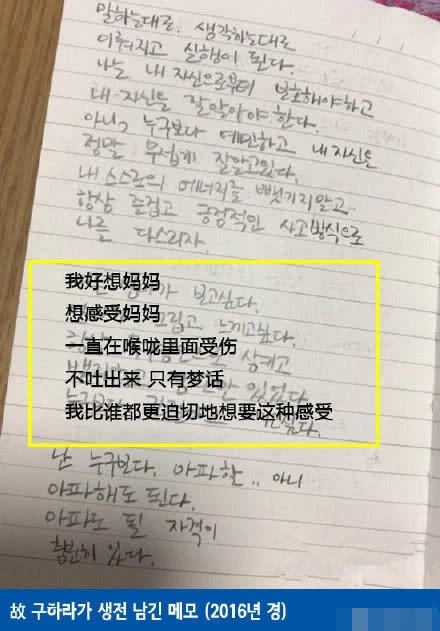 말하는대로. 생각하는대로
이뤄지고 실행이 된다.
나는 내 자신으로부터 보호해야하고
내 자신을 잘 알아야 한다.
아니, 누구보다 예민하고 내 자신은
정말 무섭게 잘알고있다.
내 스스로의 에너지를 뺏기지말고
항상 즐겁고 긍정적인 사고방식으로
나를 다스리자.
我好想妈妈 보고싶다.
想感受妈妈 그립고 느끼고싶다.
一直在喉咙里面受伤
不吐出来 只有梦话 있었다
我比谁都更迫切地想要这种感受
난 누구보다. 아파할.. 아니
아파해도 된다.
아파도 될 자격이
충분히 있다.
故 구하라가 생전 남긴 메모 (2016년 경)